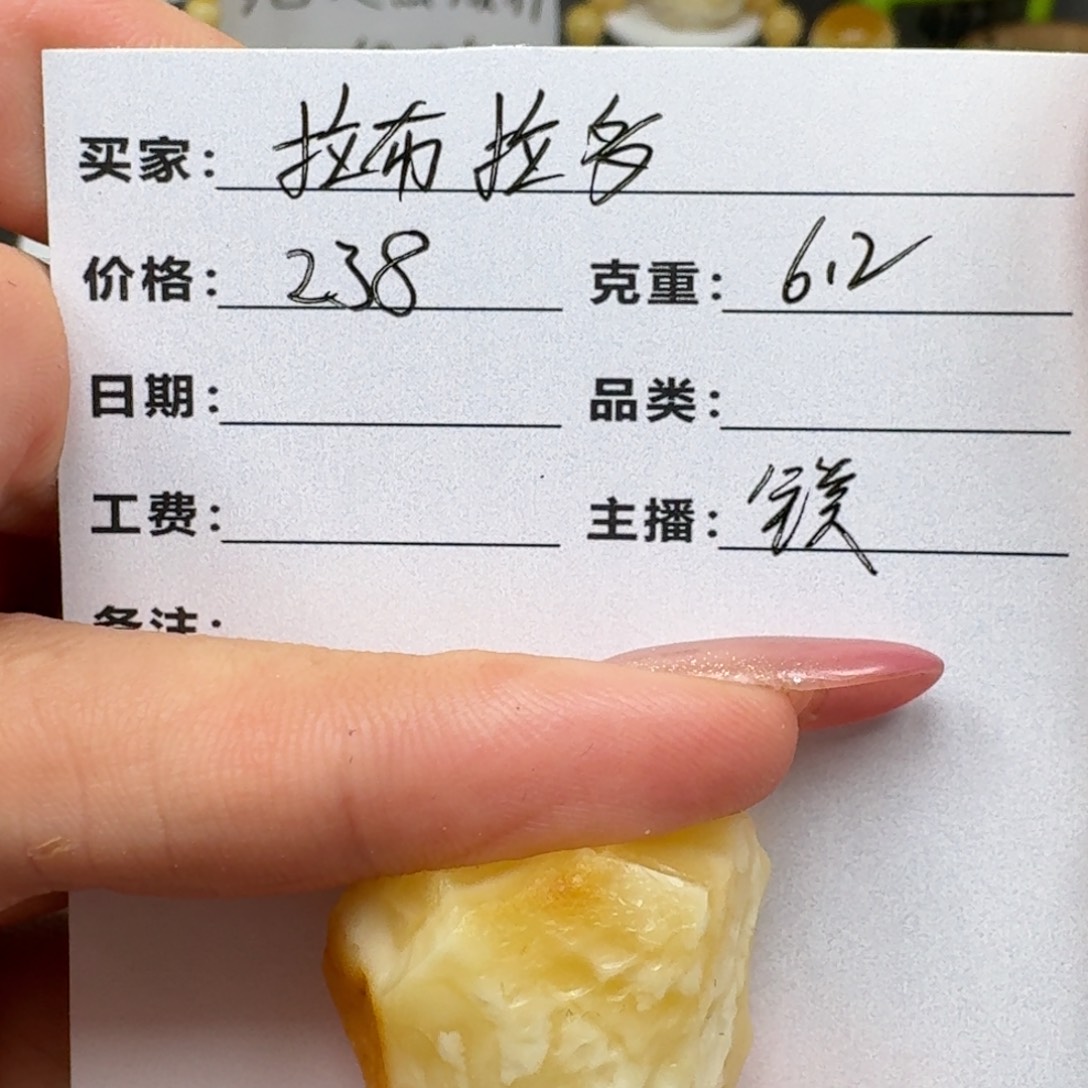 买家：拉布拉多
价格：238 克重：6.2
日期： 品类：
工费： 主播：
备注：